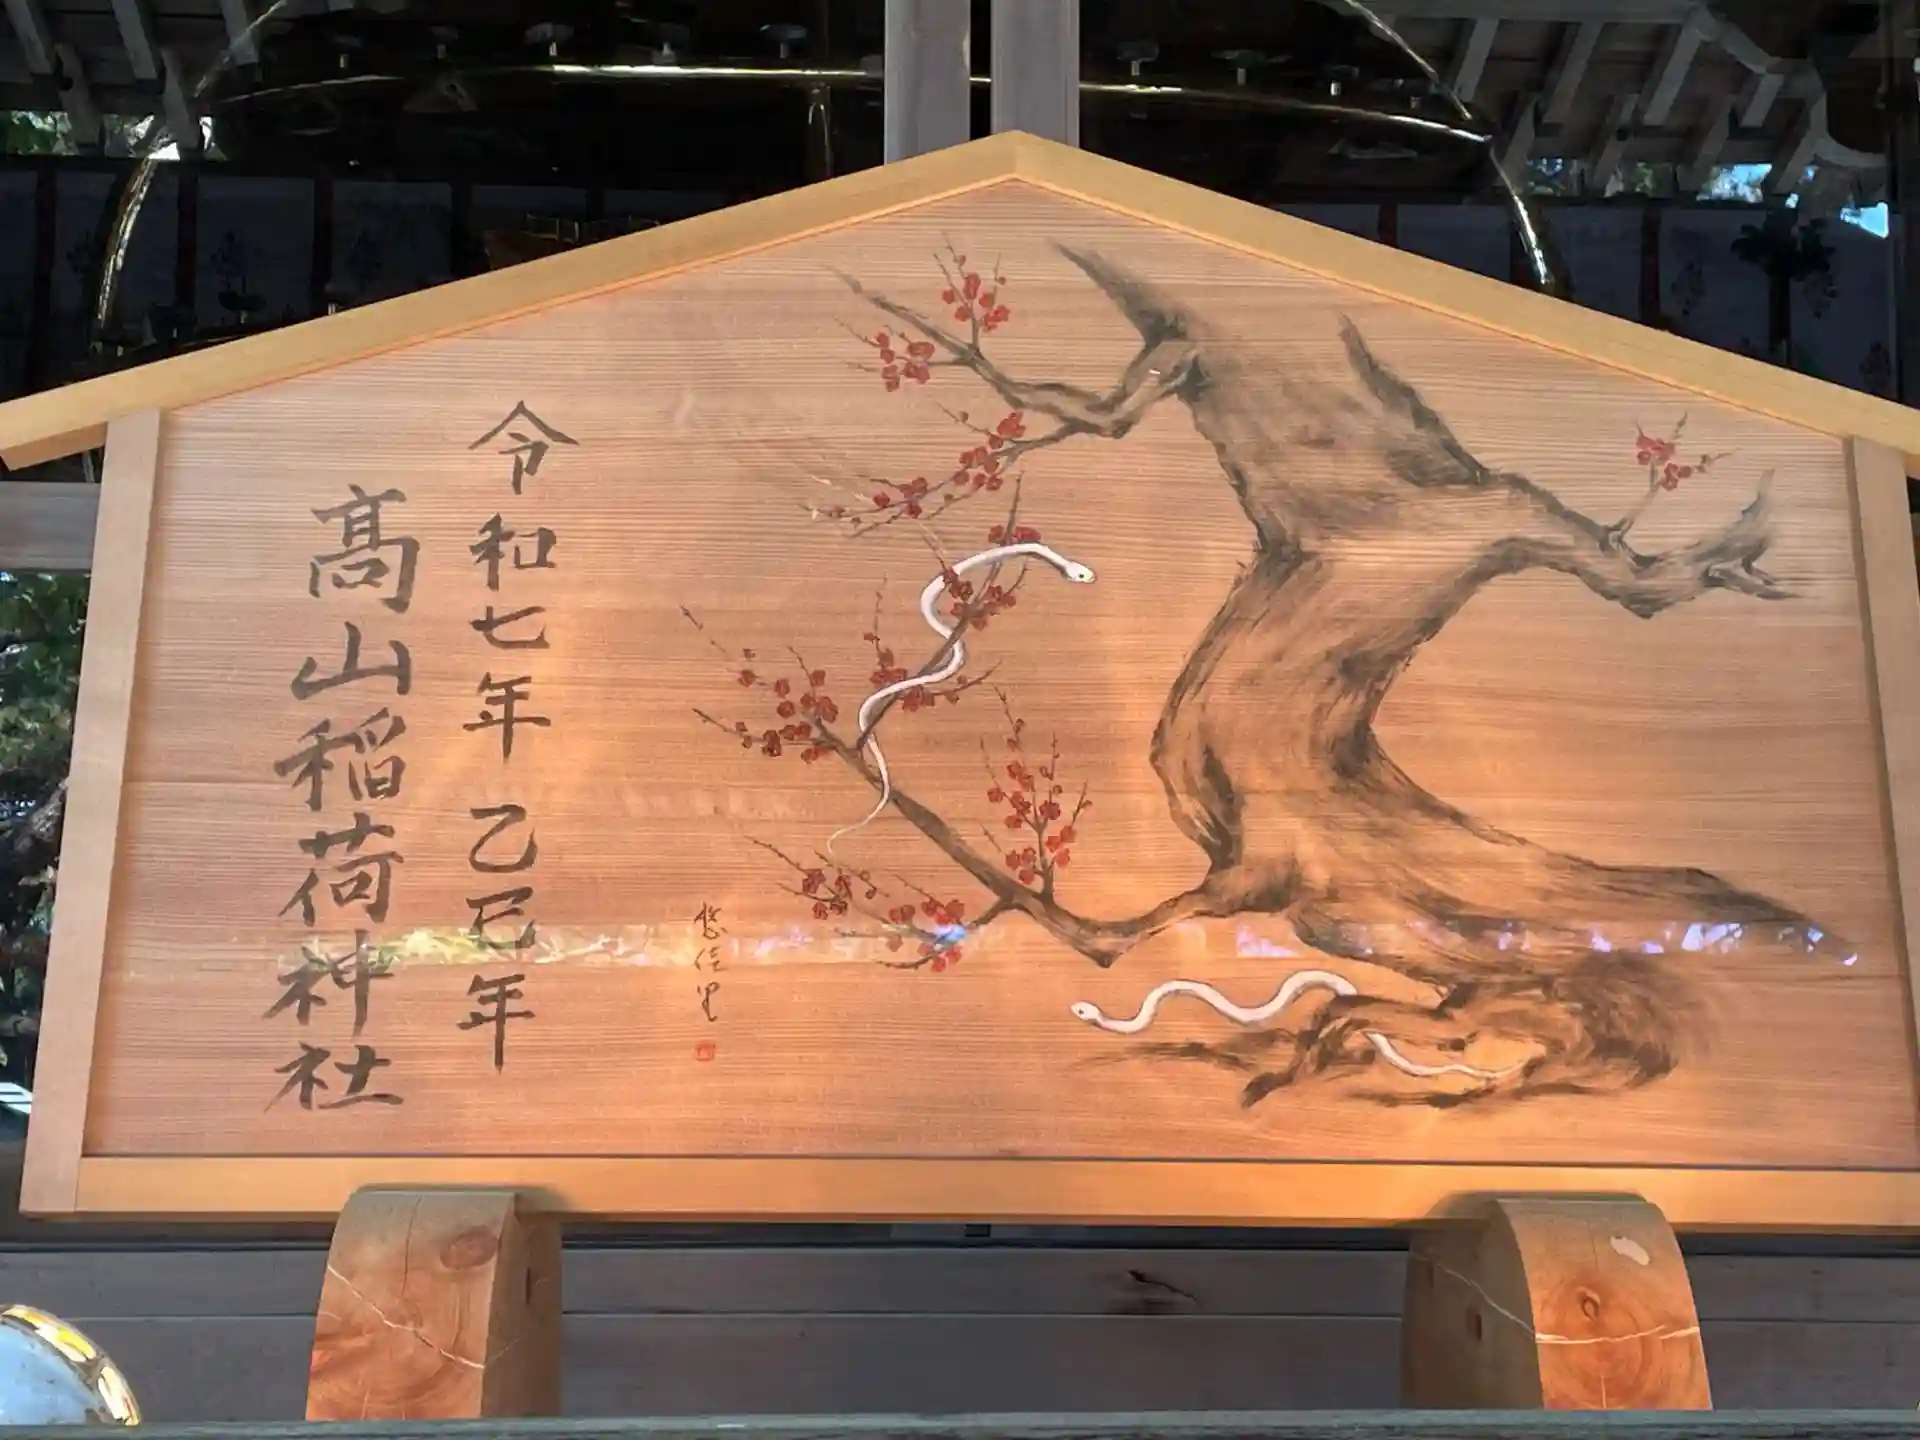 令和七年 乙巳年
髙山稲荷神社